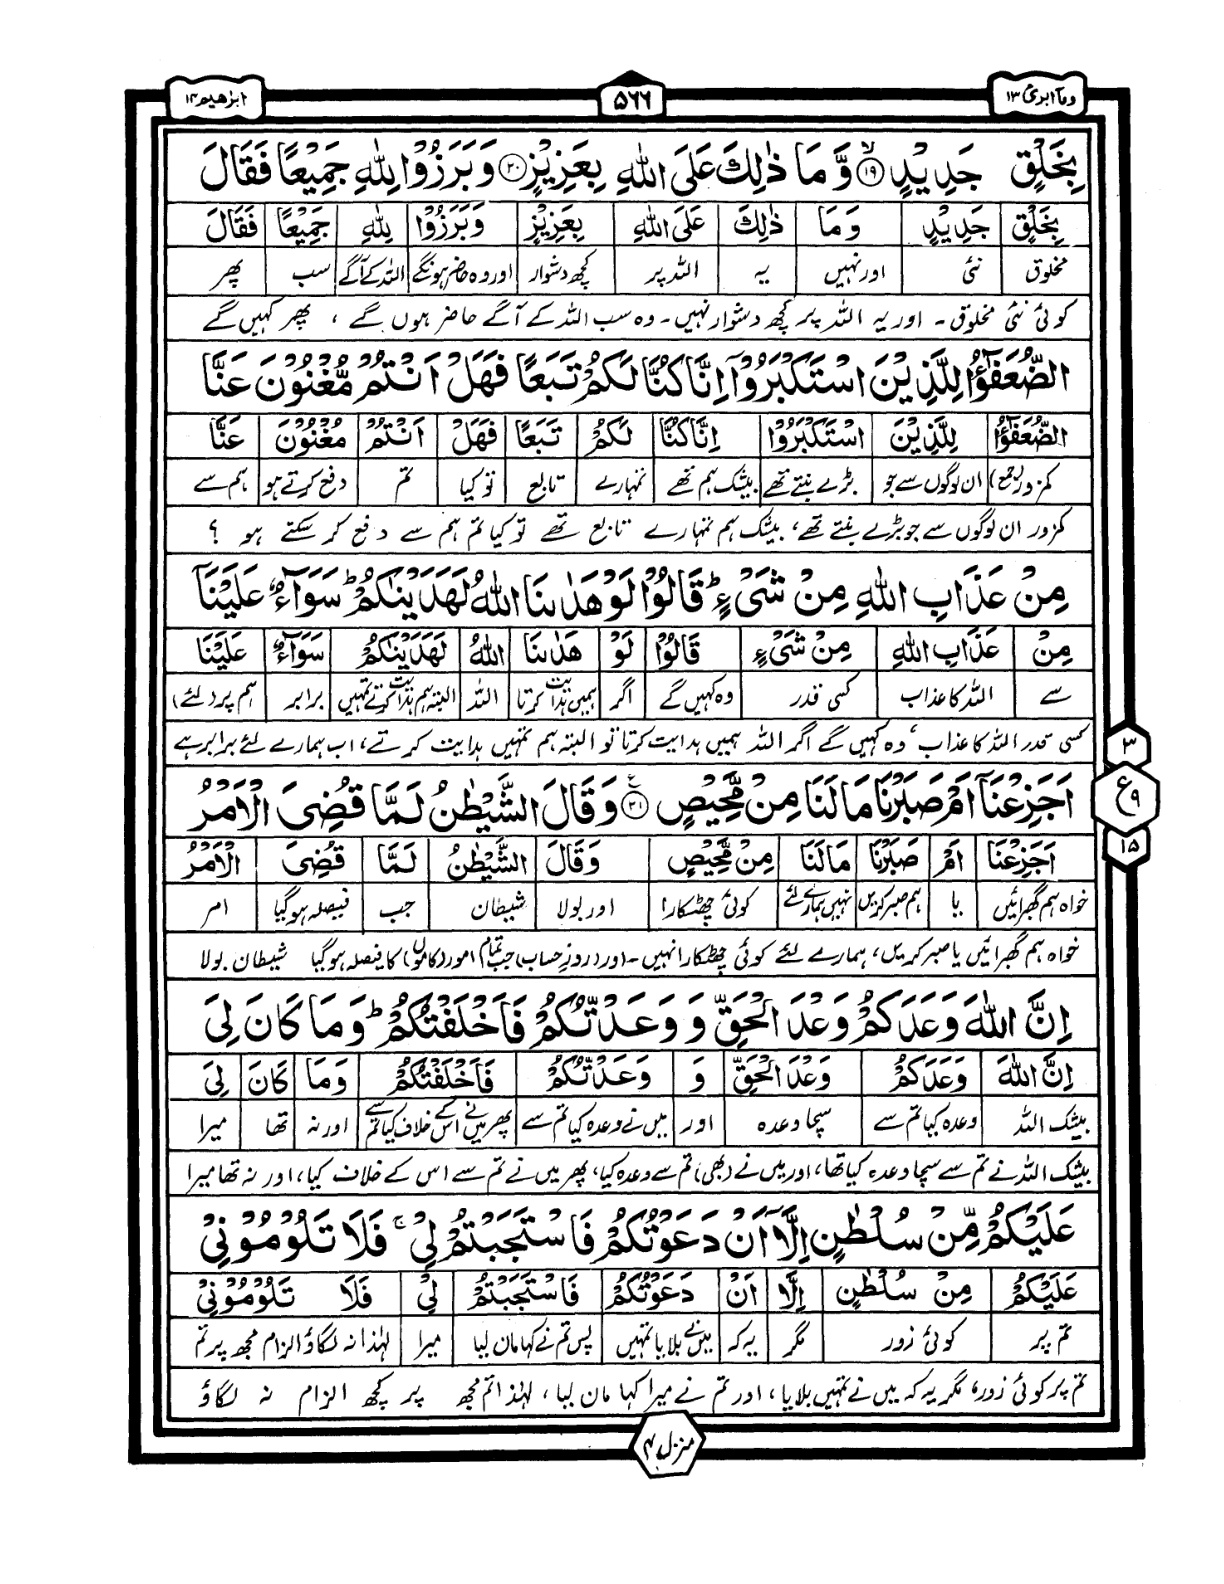 وما ابرئ ١٣
٥٦٦
ابرٰهيم ١٤
بِخَلْقٍ جَدِيْدٍ ۙ﴿١٩﴾ وَّمَا ذٰلِكَ عَلَى اللّٰهِ بِعَزِيْزٍ ﴿٢٠﴾ وَبَرَزُوْا لِلّٰهِ جَمِيْعًا فَقَالَ
بِخَلْقٍ جَدِيْدٍ وَمَا ذٰلِكَ عَلَى اللّٰهِ بِعَزِيْزٍ وَبَرَزُوْا لِلّٰهِ جَمِيْعًا فَقَالَ
مخلوق نئی اور نہیں یہ اللہ پر کچھ دشوار اور وہ حاضر ہونگے اللہ کے آگے سب پھر
کوئی نئی مخلوق۔ اور یہ اللہ پر کچھ دشوار نہیں۔ وہ سب اللہ کے آگے حاضر ہوں گے ، پھر کہیں گے
الضُّعَفٰٓؤُا لِلَّذِيْنَ اسْتَكْبَرُوْٓا اِنَّا كُنَّا لَكُمْ تَبَعًا فَهَلْ اَنْتُمْ مُّغْنُوْنَ عَنَّا
الضُّعَفٰٓؤُا لِلَّذِيْنَ اسْتَكْبَرُوْٓا اِنَّا كُنَّا لَكُمْ تَبَعًا فَهَلْ اَنْتُمْ مُغْنُوْنَ عَنَّا
کمزور (جمع) ان لوگوں سے جو بڑے بنتے تھے بیشک ہم تھے تمہارے تابع تو کیا تم دفع کرتے ہو ہم سے
کمزور ان لوگوں سے جو بڑے بنتے تھے، بیشک ہم تمہارے تابع تھے تو کیا تم ہم سے دفع کر سکتے ہو ؟
مِنْ عَذَابِ اللّٰهِ مِنْ شَيْءٍ ؕ قَالُوْا لَوْ هَدٰىنَا اللّٰهُ لَهَدَيْنٰكُمْ ؕ سَوَآءٌ عَلَيْنَآ
مِنْ عَذَابِ اللّٰهِ مِنْ شَيْءٍ قَالُوْا لَوْ هَدٰىنَا اللّٰهُ لَهَدَيْنٰكُمْ سَوَآءٌ عَلَيْنَا
سے اللہ کا عذاب کسی قدر وہ کہیں گے اگر ہمیں ہدایت کرتا اللہ البتہ ہم ہدایت کرتے تمہیں برابر ہم پر (لئے)
کسی قدر اللہ کا عذاب، وہ کہیں گے اگر اللہ ہمیں ہدایت کرتا تو البتہ ہم تمہیں ہدایت کرتے، اب ہمارے لئے برابر ہے
٣
ع ٩
١٥
اَجَزِعْنَآ اَمْ صَبَرْنَا مَا لَنَا مِنْ مَّحِيْصٍ ﴿٢١﴾ ع وَقَالَ الشَّيْطٰنُ لَمَّا قُضِيَ الْاَمْرُ
اَجَزِعْنَا اَمْ صَبَرْنَا مَا لَنَا مِنْ مَّحِيْصٍ وَقَالَ الشَّيْطٰنُ لَمَّا قُضِيَ الْاَمْرُ
خواہ ہم گھبرائیں یا ہم صبر کریں نہیں ہمارے لئے کوئی چھٹکارا اور بولا شیطان جب فیصلہ ہو گیا امر
خواہ ہم گھبرائیں یا صبر کریں، ہمارے لئے کوئی چھٹکارا نہیں۔ اور (روزِ حساب) جب تمام امور (کاموں) کا فیصلہ ہو گیا شیطان بولا
اِنَّ اللّٰهَ وَعَدَكُمْ وَعْدَ الْحَقِّ وَ وَعَدْتُّكُمْ فَاَخْلَفْتُكُمْ ؕ وَمَا كَانَ لِيَ
اِنَّ اللّٰهَ وَعَدَكُمْ وَعْدَ الْحَقِّ وَ وَعَدْتُّكُمْ فَاَخْلَفْتُكُمْ وَمَا كَانَ لِيَ
بیشک اللہ وعدہ کیا تم سے سچا وعدہ اور میں نے وعدہ کیا تم سے پھر میں نے اس کے خلاف کیا تم سے اور نہ تھا میرا
بیشک اللہ نے تم سے سچا وعدہ کیا تھا، اور میں نے (بھی) تم سے وعدہ کیا، پھر میں نے تم سے اس کے خلاف کیا، اور نہ تھا میرا
عَلَيْكُمْ مِّنْ سُلْطٰنٍ اِلَّآ اَنْ دَعَوْتُكُمْ فَاسْتَجَبْتُمْ لِيْ ۚ فَلَا تَلُوْمُوْنِيْ
عَلَيْكُمْ مِنْ سُلْطٰنٍ اِلَّا اَنْ دَعَوْتُكُمْ فَاسْتَجَبْتُمْ لِيْ فَلَا تَلُوْمُوْنِيْ
تم پر کوئی زور مگر یہ کہ میں نے بلایا تمہیں پس تم نے کہا مان لیا میرا لہٰذا نہ لگاؤ الزام مجھ پر تم
تم پر کوئی زور، مگر یہ کہ میں نے تمہیں بلایا، اور تم نے میرا کہا مان لیا، لہٰذا تم مجھ پر کچھ الزام نہ لگاؤ
منزل ٣